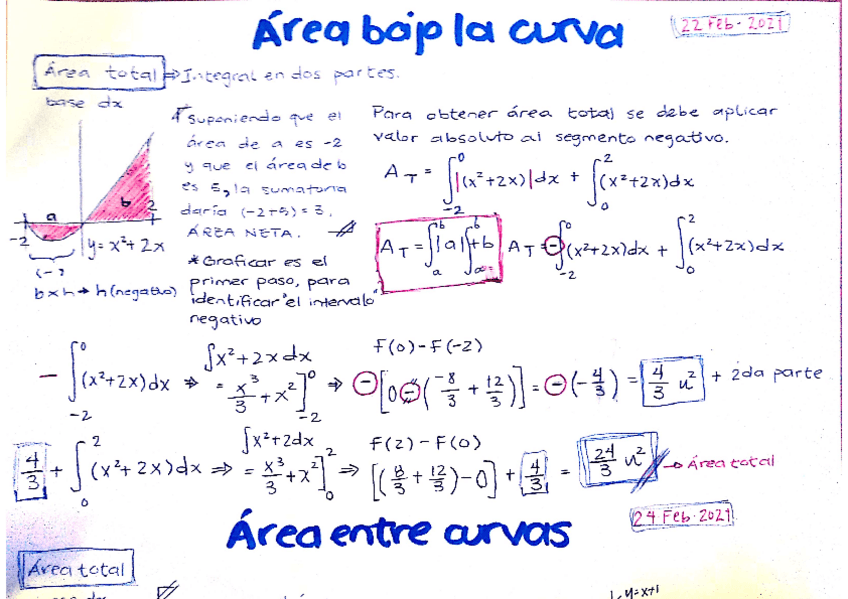 Área bajo la curva
22 Feb. 2021
Área total ⇒ Integral en dos partes.
base dx
Suponiendo que el
área de a es -2
y que el área de b
es 5, la sumatoria
daría (-2+5) = 3.
ÁREA NETA.
* Graficar es el
primer paso, para
identificar "el intervalo"
negativo
a
b
-2
2
y = x²+2x
(-)
b x h → h (negativo)
Para obtener área total se debe aplicar
valor absoluto al segmento negativo.
A_T = ∫_{-2}^{0} |(x²+2x)| dx + ∫_{0}^{2} (x²+2x)dx
A_T = ∫_{a}^{b} |a| ∫^{b} + b
A_T = - ∫_{-2}^{0} (x²+2x)dx + ∫_{0}^{2} (x²+2x)dx
∫x²+2x dx
F(0) - F(-2)
- ∫_{-2}^{0} (x²+2x)dx ⇒ = x³/3 + x²]_{-2}^{0} ⇒ -[0 - (-8/3 + 12/3)] = -(-4/3) = 4/3 u² + 2da parte
∫x²+2dx
F(2) - F(0)
4/3 + ∫_{0}^{2} (x²+2x)dx ⇒ = x³/3 + x²]_{0}^{2} ⇒ [(8/3 + 12/3) - 0] + 4/3 = 24/3 u² → Área total
Área entre curvas
24 Feb. 2021
Área total
y=x+1